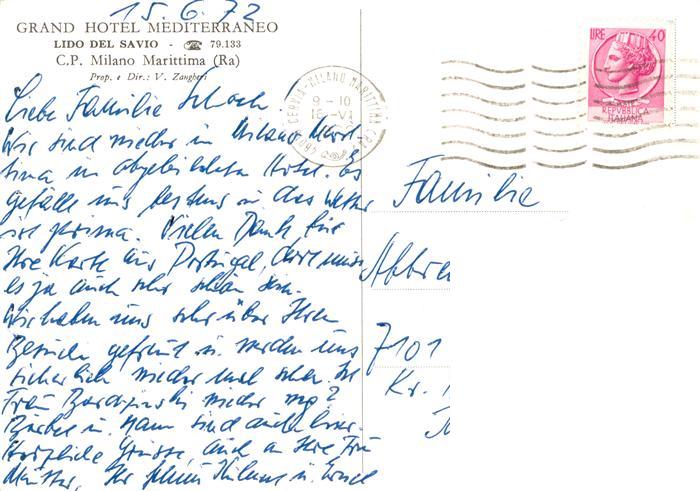 15.6.72
GRAND HOTEL MEDITERRANEO
LIDO DEL SAVIO - ☎ 79.133
C.P. Milano Marittima (Ra)
Prop. e Dir.: V. Zangheri
Liebe Familie Schach!
Wir sind wieder in Milano Marit-
tima im abgebildeten Hotel. Es
gefällt uns bestens u. das Wetter
ist prima. Vielen Dank für
Ihre Karte aus Portugal, dort muss
es ja auch sehr schön sein.
Wir haben uns sehr über Ihren
Besuch gefreut u. werden uns
sicherlich wieder mal sehen. Ist
Frau wieder ?
Bärbel u. Mann sind auch hier.
Herzliche Grüsse, auch an Ihre Frau
Mutter, Ihr u.
LIRE 40
REPVBBLICA
ITALIANA
CERVIA-MILANO MARITTIMA (RA)
9-10
16.VI
Familie
7101
Kr.